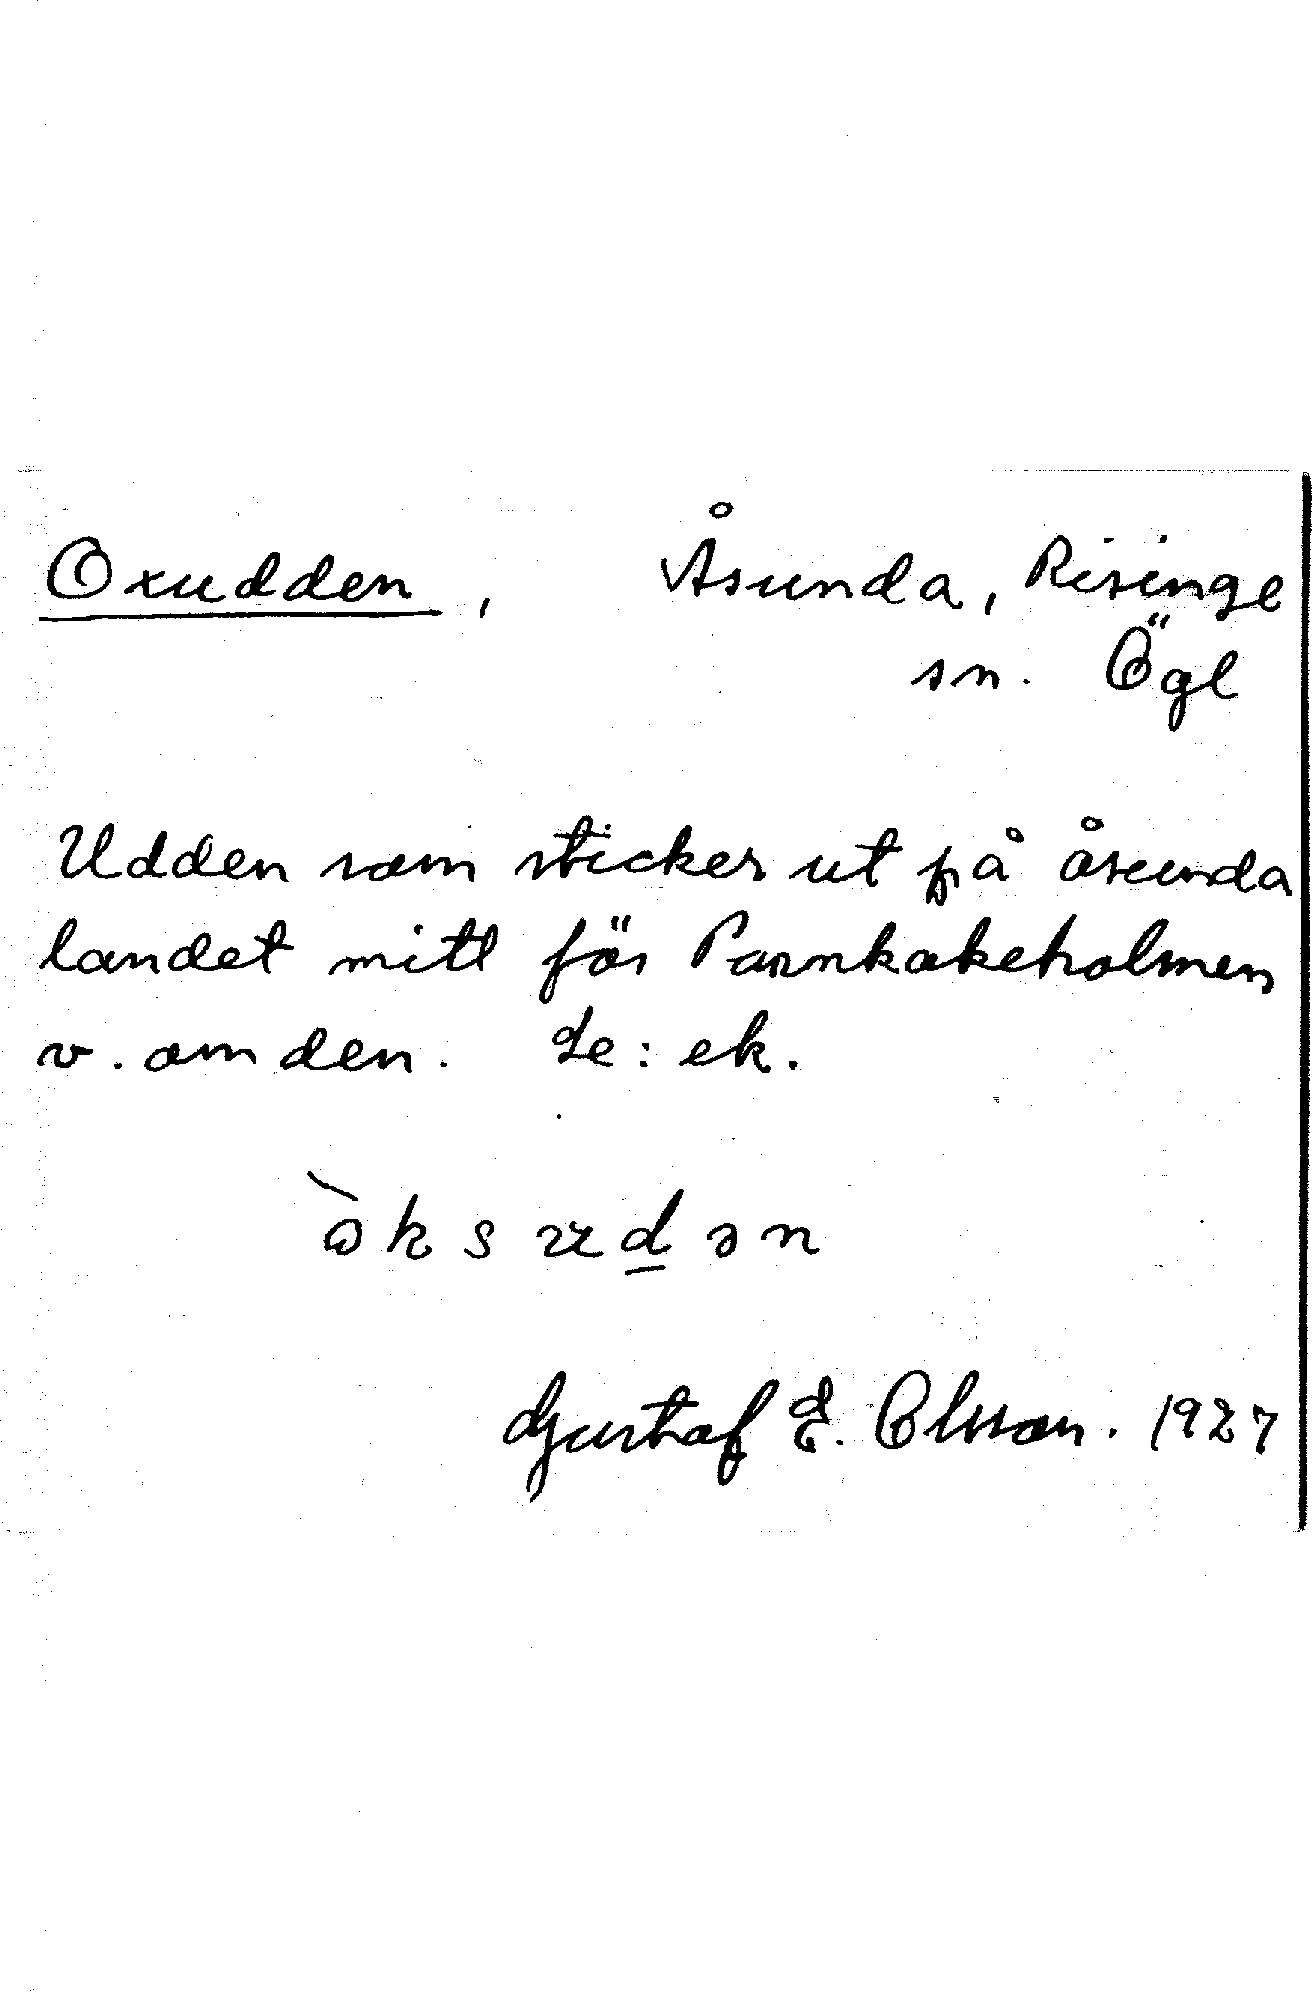 Oxudden, Åsunda, Risinge
sn. Ögl
Udden som sticker ut på åsunda
landet mitt för Pannkakeholmen
v. om den. Le: ek.
ὼksud̲ən
Gustaf E. Olsson. 1927